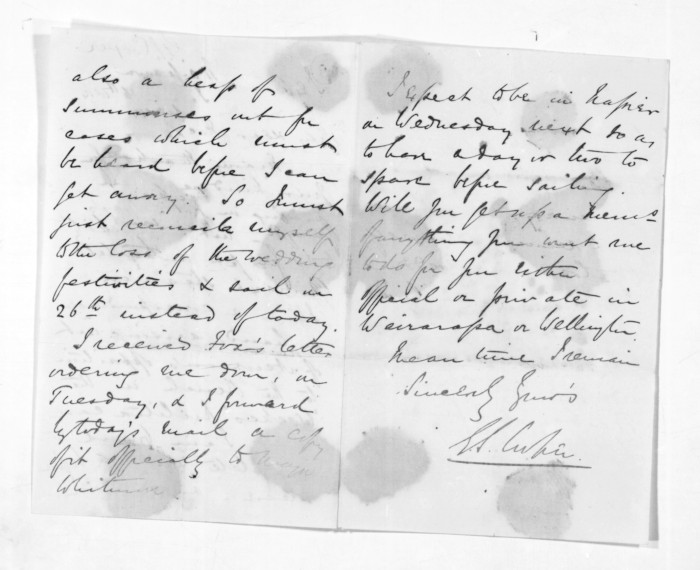 also a heap of
Summonses out for
cases which must
be heard before I can
get away. So I must
just reconcile myself
to the loss of the wedding
festivities & sail on
26th instead of today.
I received Fox's letter
ordering me down, on
Tuesday, & I forward
by today's mail a copy
of it officially to Major
Whitmore.
I expect to be in Napier
on Wednesday next so as
to have a day or two to
spare before sailing.
Will you get up a memo
of anything you want me
to do for you either
official or private in
Wairarapa or Wellington.
Mean time I remain
Sincerely Yours
G S. Cooper.